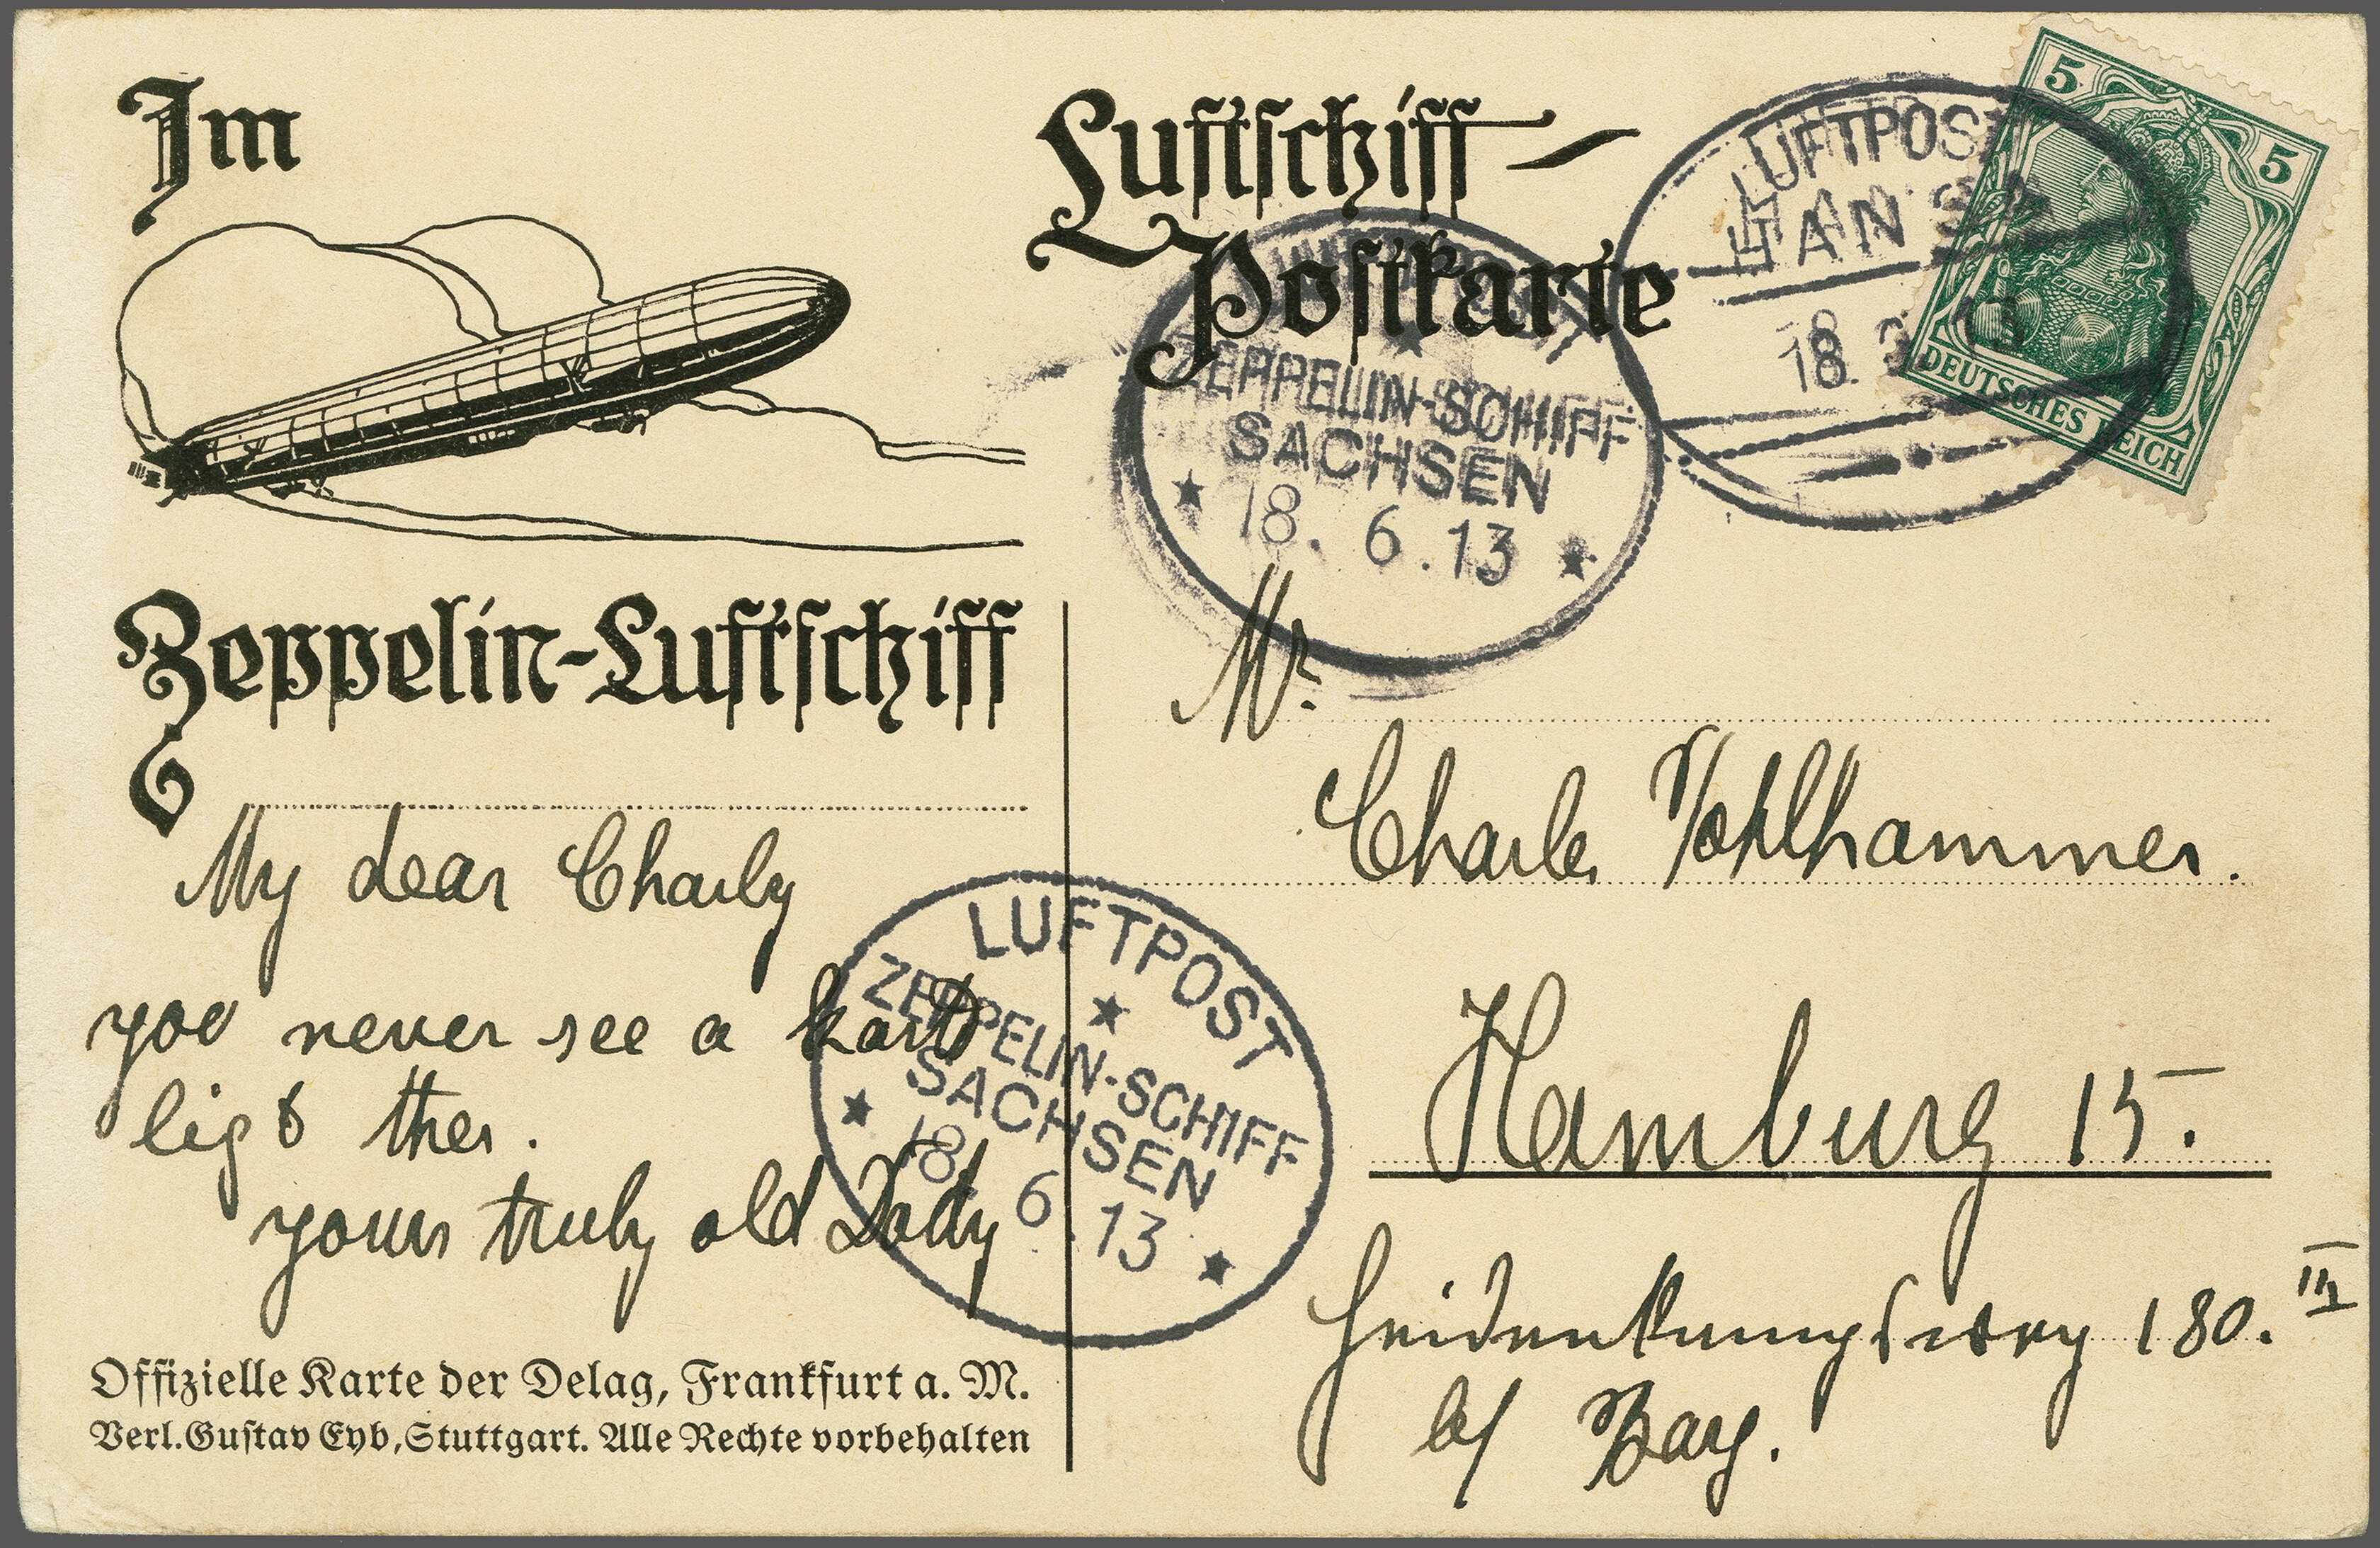 Im
Zeppelin-Luftschiff
Luftschiff-
Postkarte
LUFTPOST
HANSA
18. 13
5 5
DEUTSCHES REICH
LUFTPOST
ZEPPELIN-SCHIFF
SACHSEN
18. 6. 13
My dear Charly
you never see a kart
ligt ther.
yours truly old Dody
LUFTPOST
ZEPPELIN-SCHIFF
SACHSEN
18. 6. 13
Mr.
Charles Vohlhammer.
Hamburg 15.
Heidenkampsweg 180. III
b/
Offizielle Karte der Delag, Frankfurt a. M.
Verl. Gustav Eyb, Stuttgart. Alle Rechte vorbehalten